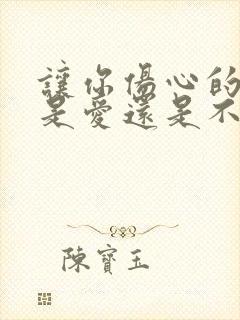 讓你傷心的
是愛還是不
陳寶玉